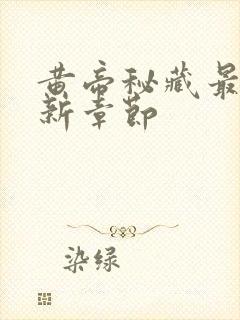 黄帝秘藏最
新章节
染绿